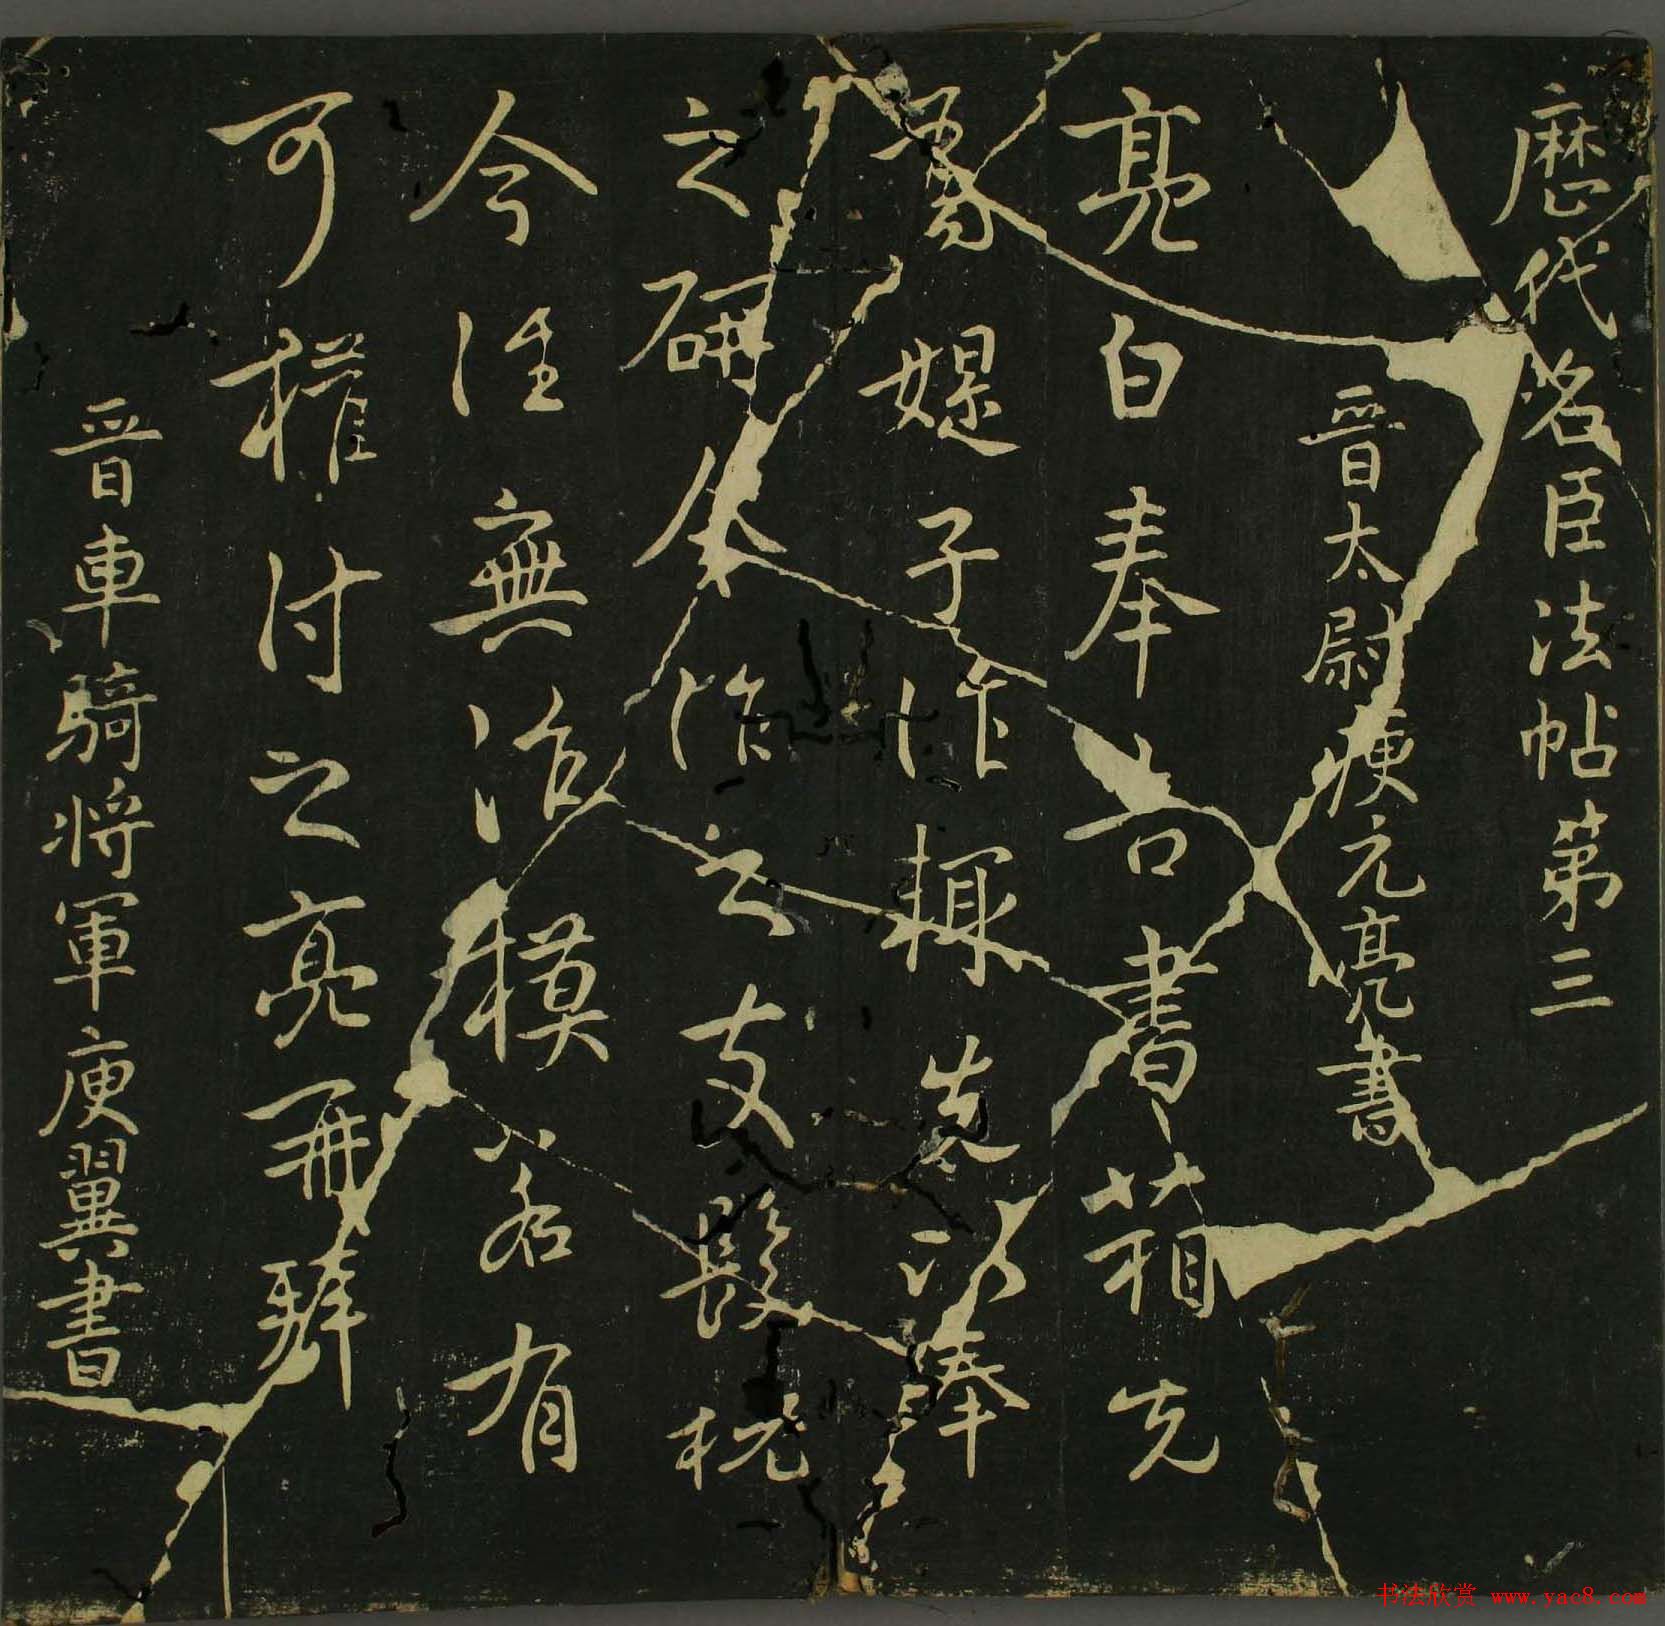 歷代名臣法帖第三
晉太尉庾元亮書
亮白奉告書箱先
媞子作先以奉
之研今作之支髮梳
今往無治模若有
可權付之亮再拜
晉車騎將軍庾翼書
书法欣赏 www.yac8.com